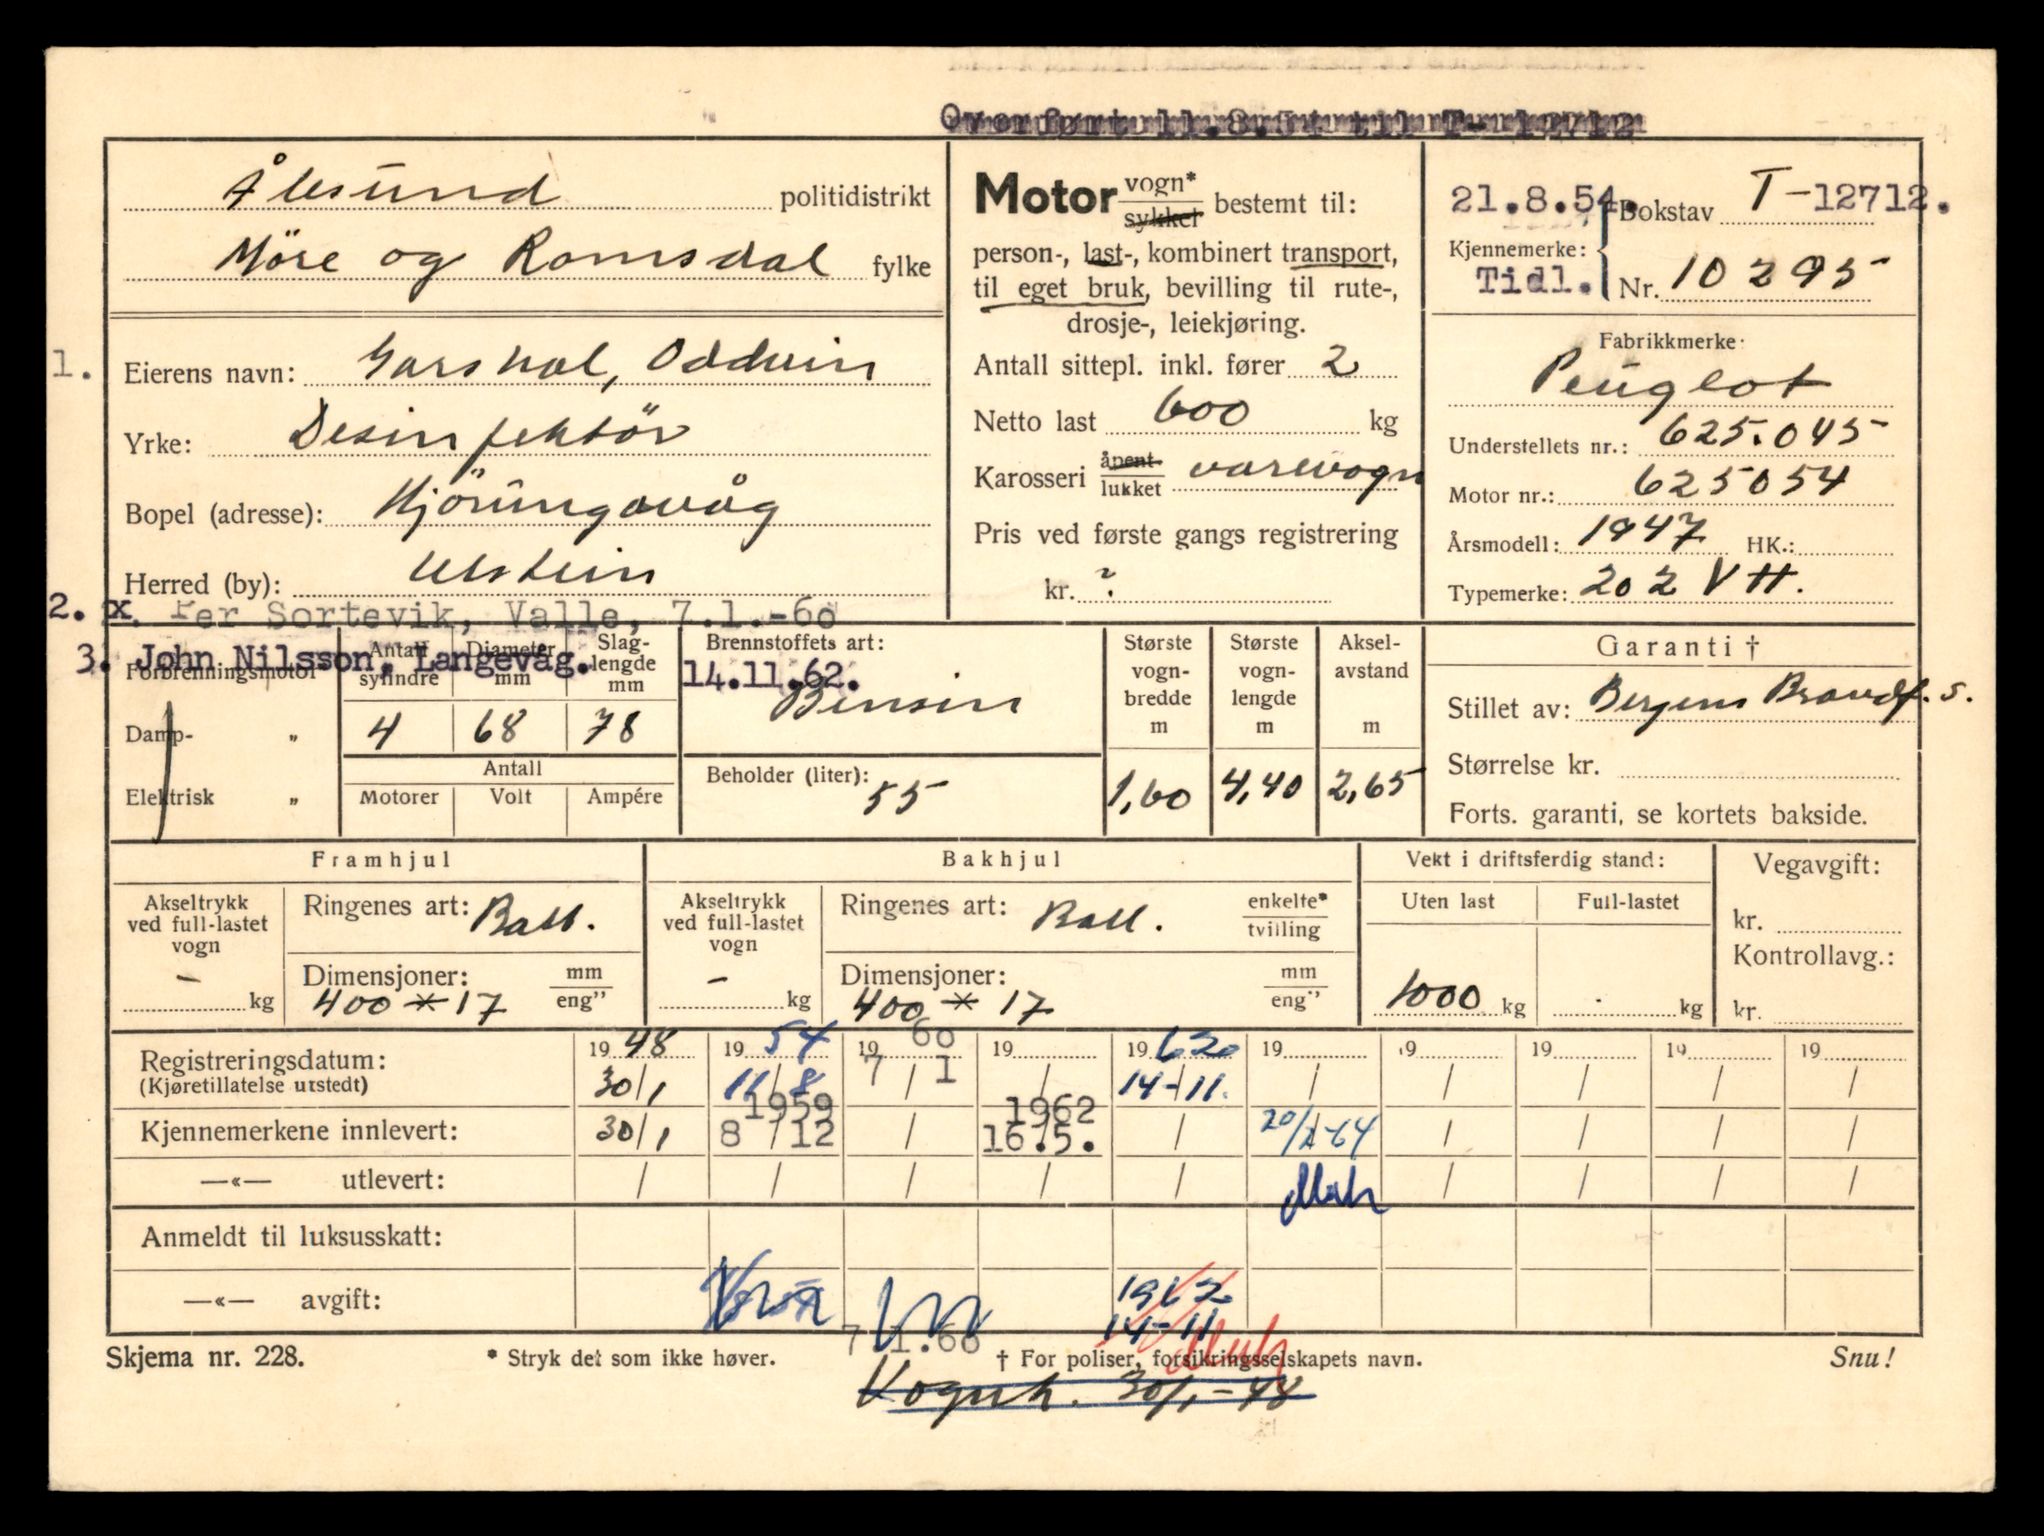 Overført 11.8.54 til T-12712
Ålesund politidistrikt
Möre og Romsdal fylke
1. Eierens navn: Garshol, Oddvin
Yrke: Desinfektör
Bopel (adresse): Hjörungavåg
Herred (by): Ulstein
2. x. Per Sortevik, Valle, 7.1.-60
3. John Nilsson, Langevåg. 14.11.62.
Motor vogn* sykkel bestemt til:
person-, last-, kombinert transport,
til eget bruk, bevilling til rute-,
drosje-, leiekjøring.
Antall sittepl. inkl. fører 2
Netto last 600 kg
Karosseri åpent lukket varevogn
Pris ved første gangs registrering
kr. ?
21.8.54. Bokstav T-12712.
Kjennemerke:
Tidl. Nr. 10295
Fabrikkmerke:
Peugeot
Understellets nr.: 625.045
Motor nr.: 625054
Årsmodell: 1947 HK.:
Typemerke: 202 VH.
Forbrenningsmotor
Damp- „
Elektrisk „
Antall sylindre Diameter mm Slaglengde mm
4 68 78
Antall
Motorer Volt Ampére
Brennstoffets art:
Bensin
Beholder (liter): 55
Største vognbredde m Største vognlengde m Akselavstand m
1,60 4,40 2,65
Garanti †
Stillet av: Bergens Brandf. s.
Størrelse kr.
Forts. garanti, se kortets bakside.
Framhjul
Akseltrykk ved full-lastet vogn
— kg
Ringenes art: Ball.
Dimensjoner: mm eng”
400 * 17
Bakhjul
Akseltrykk ved full-lastet vogn
— kg
Ringenes art: Ball. enkelte* tvilling
Dimensjoner: mm eng”
400 * 17
Vekt i driftsferdig stand:
Uten last Full-lastet
1000 kg . kg
Vegavgift:
kr.
Kontrollavg.:
kr.
Registreringsdatum: 19 48 19 54 19 60 19 19 62 19 19 19 19 19
(Kjøretillatelse utstedt) 30/1 11/8 7/1 / 14-11. / / / / /
1959 1962
Kjennemerkene innlevert: 30/1 8/12 / 16.5. / 20/2-64 / / / /
—«— utlevert: / / / / / / / / /
Anmeldt til luksusskatt:
—«— avgift: 1962
14-11
7.1.60
Skjema nr. 228. * Stryk det som ikke høver. † For poliser, forsikringsselskapets navn. Snu!
Vognk. 30/1-48